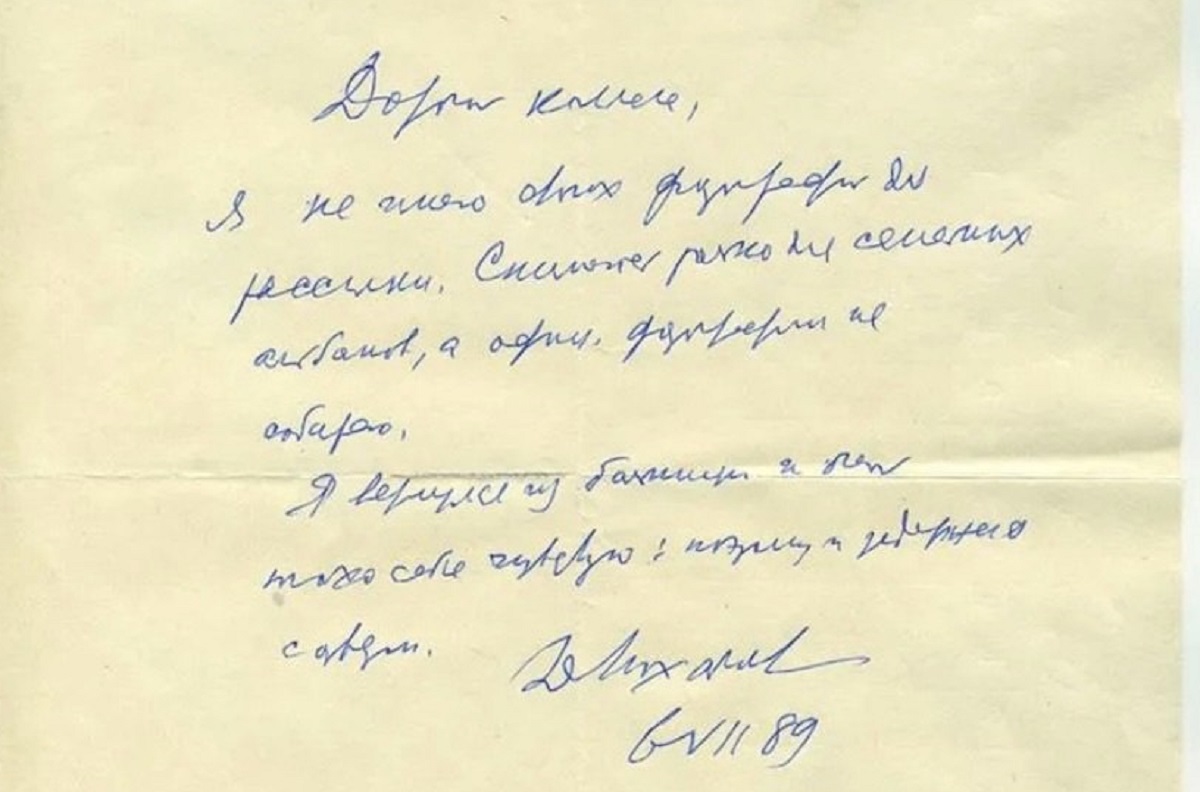 Дорогой коллега,
Я не имею своих фотографий для
рассылки. Снимают только для семейных
альбомов, а офиц. фотографии не
собираю.
Я вернулся из больницы и очень
плохо себя чувствую: и задержался
с ответом.
Д Лихачев
6 VII 89